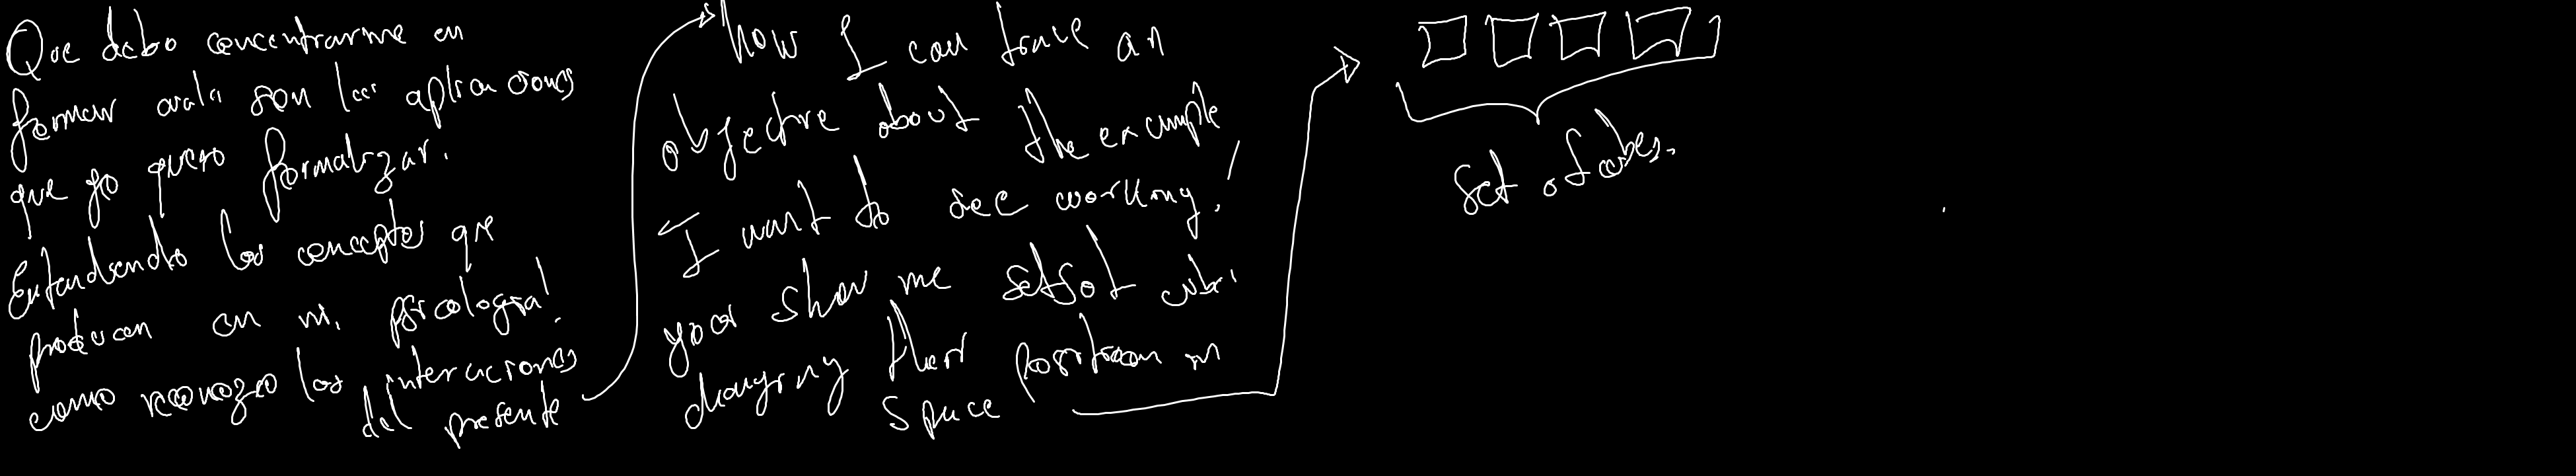 Que debo concentrarme en
formar cuales son las aplicaciones
que yo quiero formalizar.
Entendiendo los conceptos que
producen en mi psicologia!
como reconozco las interacciones
del presente
how I can trace an
objective about the example
I want to see working!
your show me set of cubes
changing their position in
space
set of cubes.